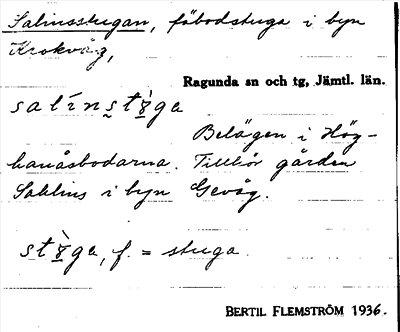 Salinsstugan, fäbodstuga i byn
Krokvåg,
Ragunda sn och tg, Jämtl. län.
Belägen i Hög-
hanåsbodarna. Tillhör gården
Sahlins i byn Gevåg.
f. = stuga.
BERTIL FLEMSTRÖM 1936.